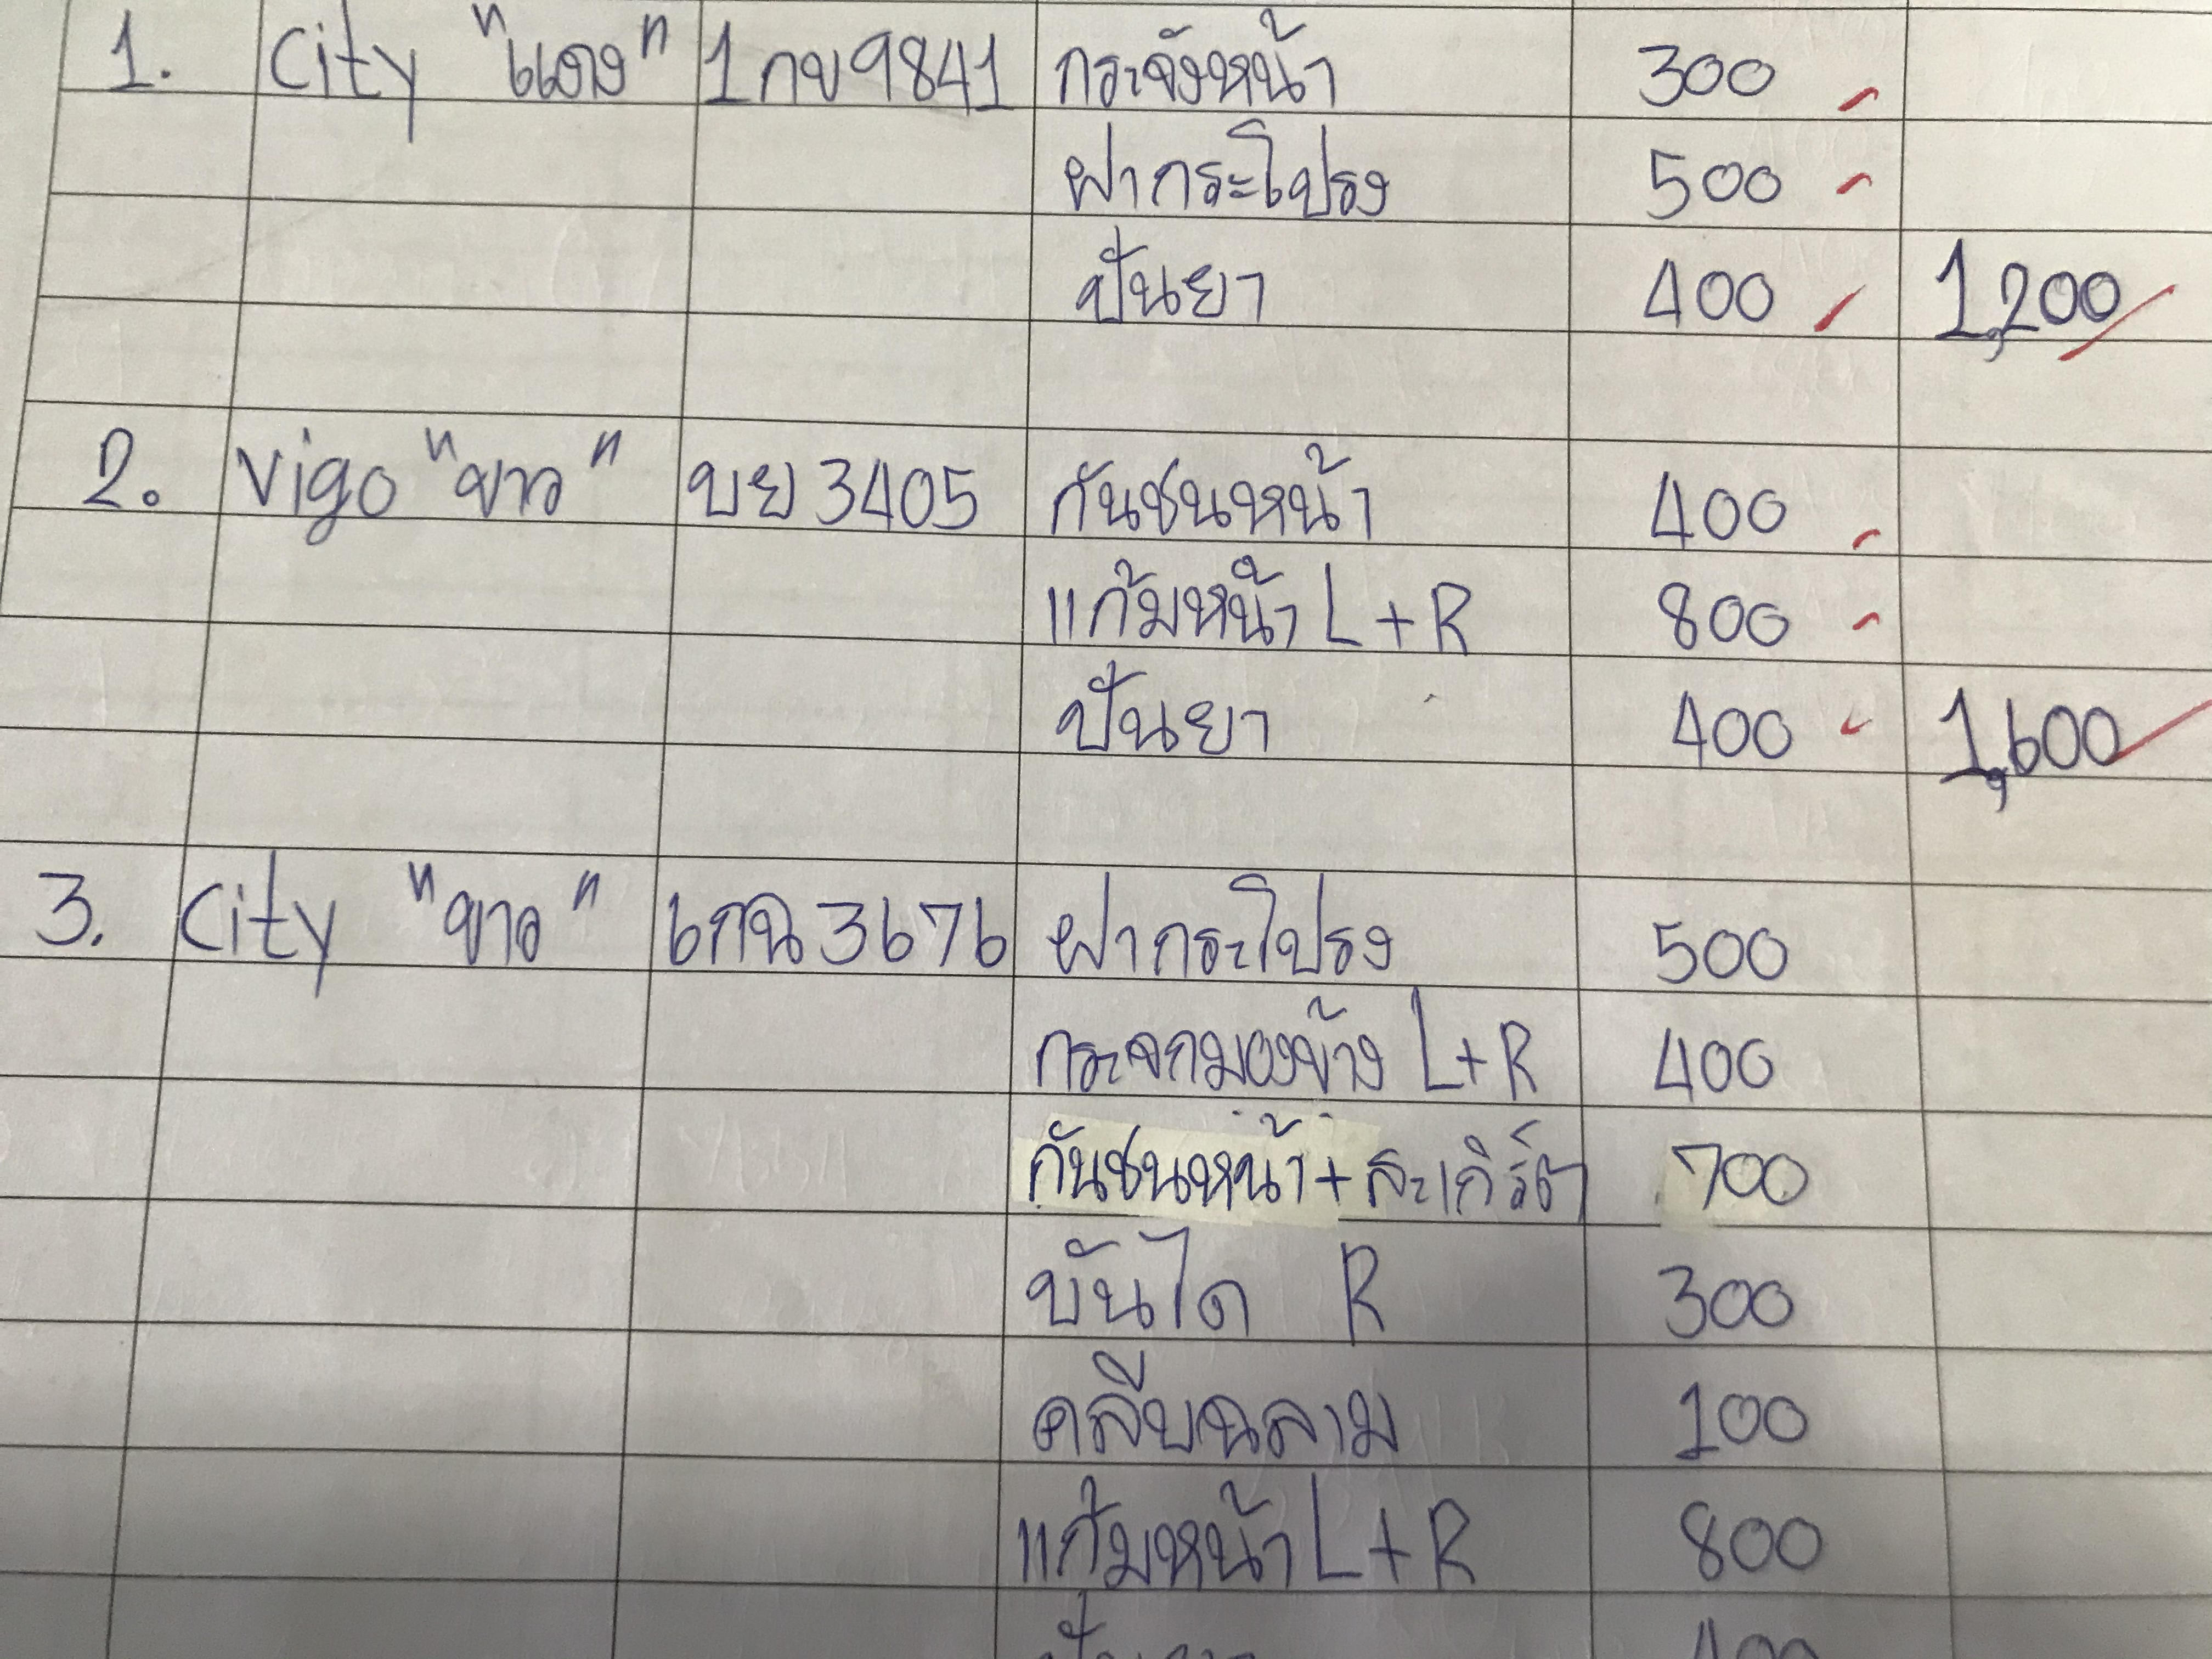 1. City "แดง" 1กข9841 กระจังหน้า 300
ฝากระโปรง 500
ปั่นยา 400 1,200
2. Vigo "ขาว" บย 3405 กันชนหน้า 400
แก้มหน้า L+R 800
ปั่นยา 400 1,600
3. City "ขาว" 6กฉ 3676 ฝากระโปรง 500
กระจกมองข้าง L+R 400
กันชนหน้า + สะเกิร์ต 700
บันได R 300
คลีบฉลาม 100
แก้มหน้า L+R 800
400